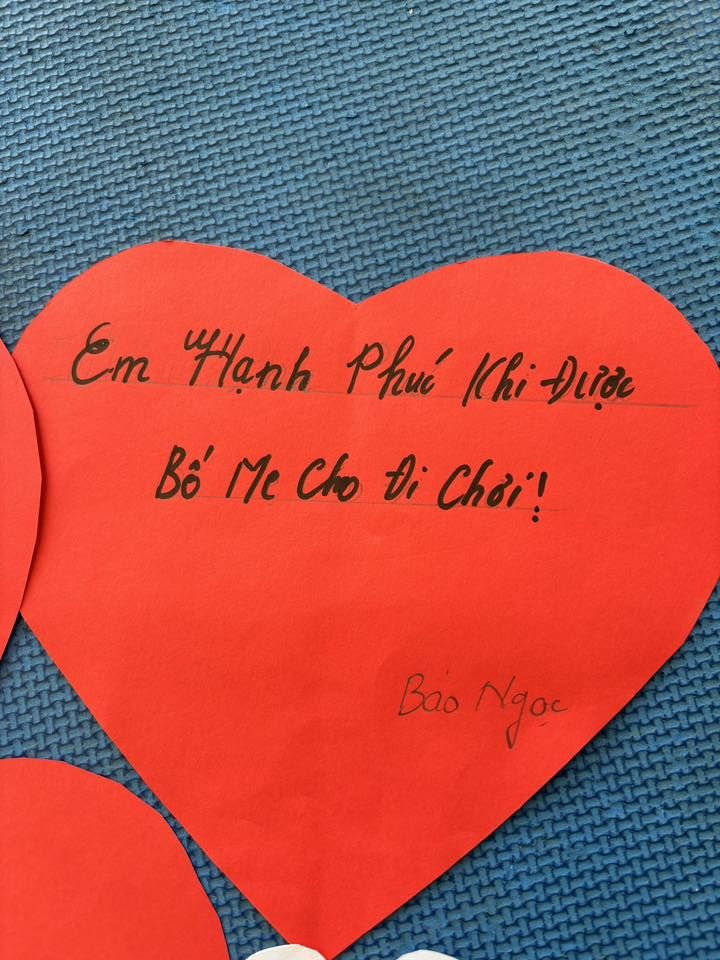 Em Hạnh Phúc Khi Được
Bố Mẹ Cho Đi Chơi!
Bảo Ngọc